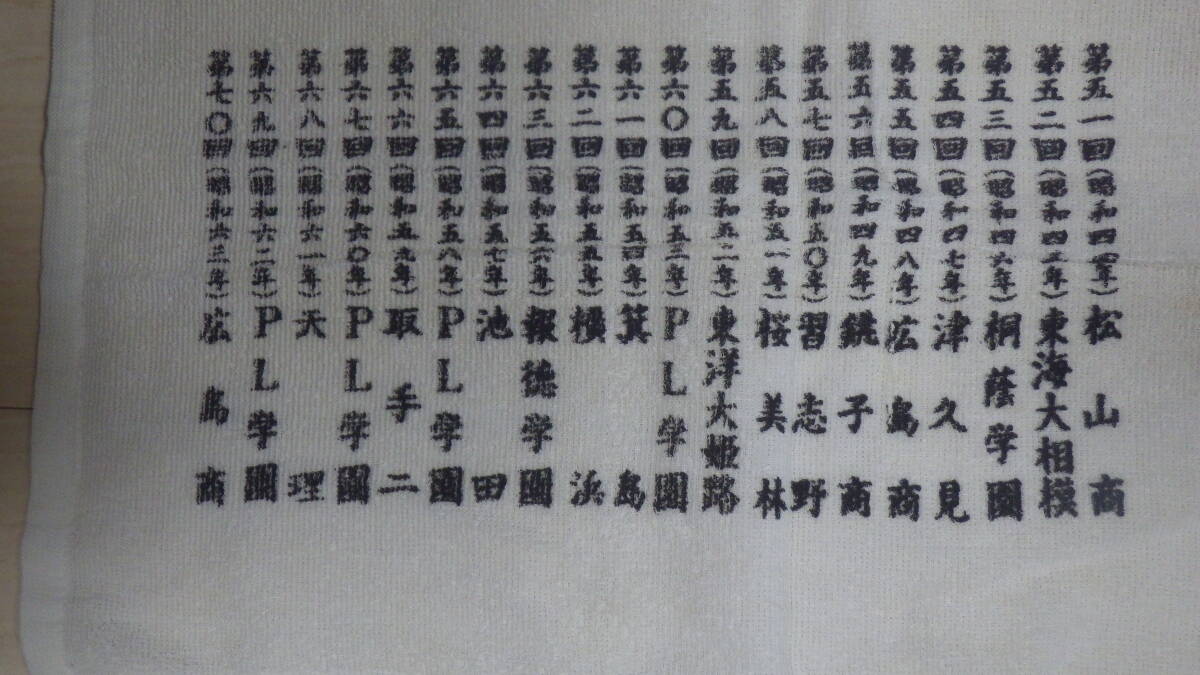 第五一回(昭和四四年)松山商
第五二回(昭和四五年)東海大相模
第五三回(昭和四六年)桐蔭学園
第五四回(昭和四七年)津久見
第五五回(昭和四八年)広島商
第五六回(昭和四九年)銚子商
第五七回(昭和五〇年)習志野
第五八回(昭和五一年)桜美林
第五九回(昭和五二年)東洋大姫路
第六〇回(昭和五三年)PL学園
第六一回(昭和五四年)箕島
第六二回(昭和五五年)横浜
第六三回(昭和五六年)報徳学園
第六四回(昭和五七年)池田
第六五回(昭和五八年)PL学園
第六六回(昭和五九年)取手二
第六七回(昭和六〇年)PL学園
第六八回(昭和六一年)天理
第六九回(昭和六二年)PL学園
第七〇回(昭和六三年)広島商